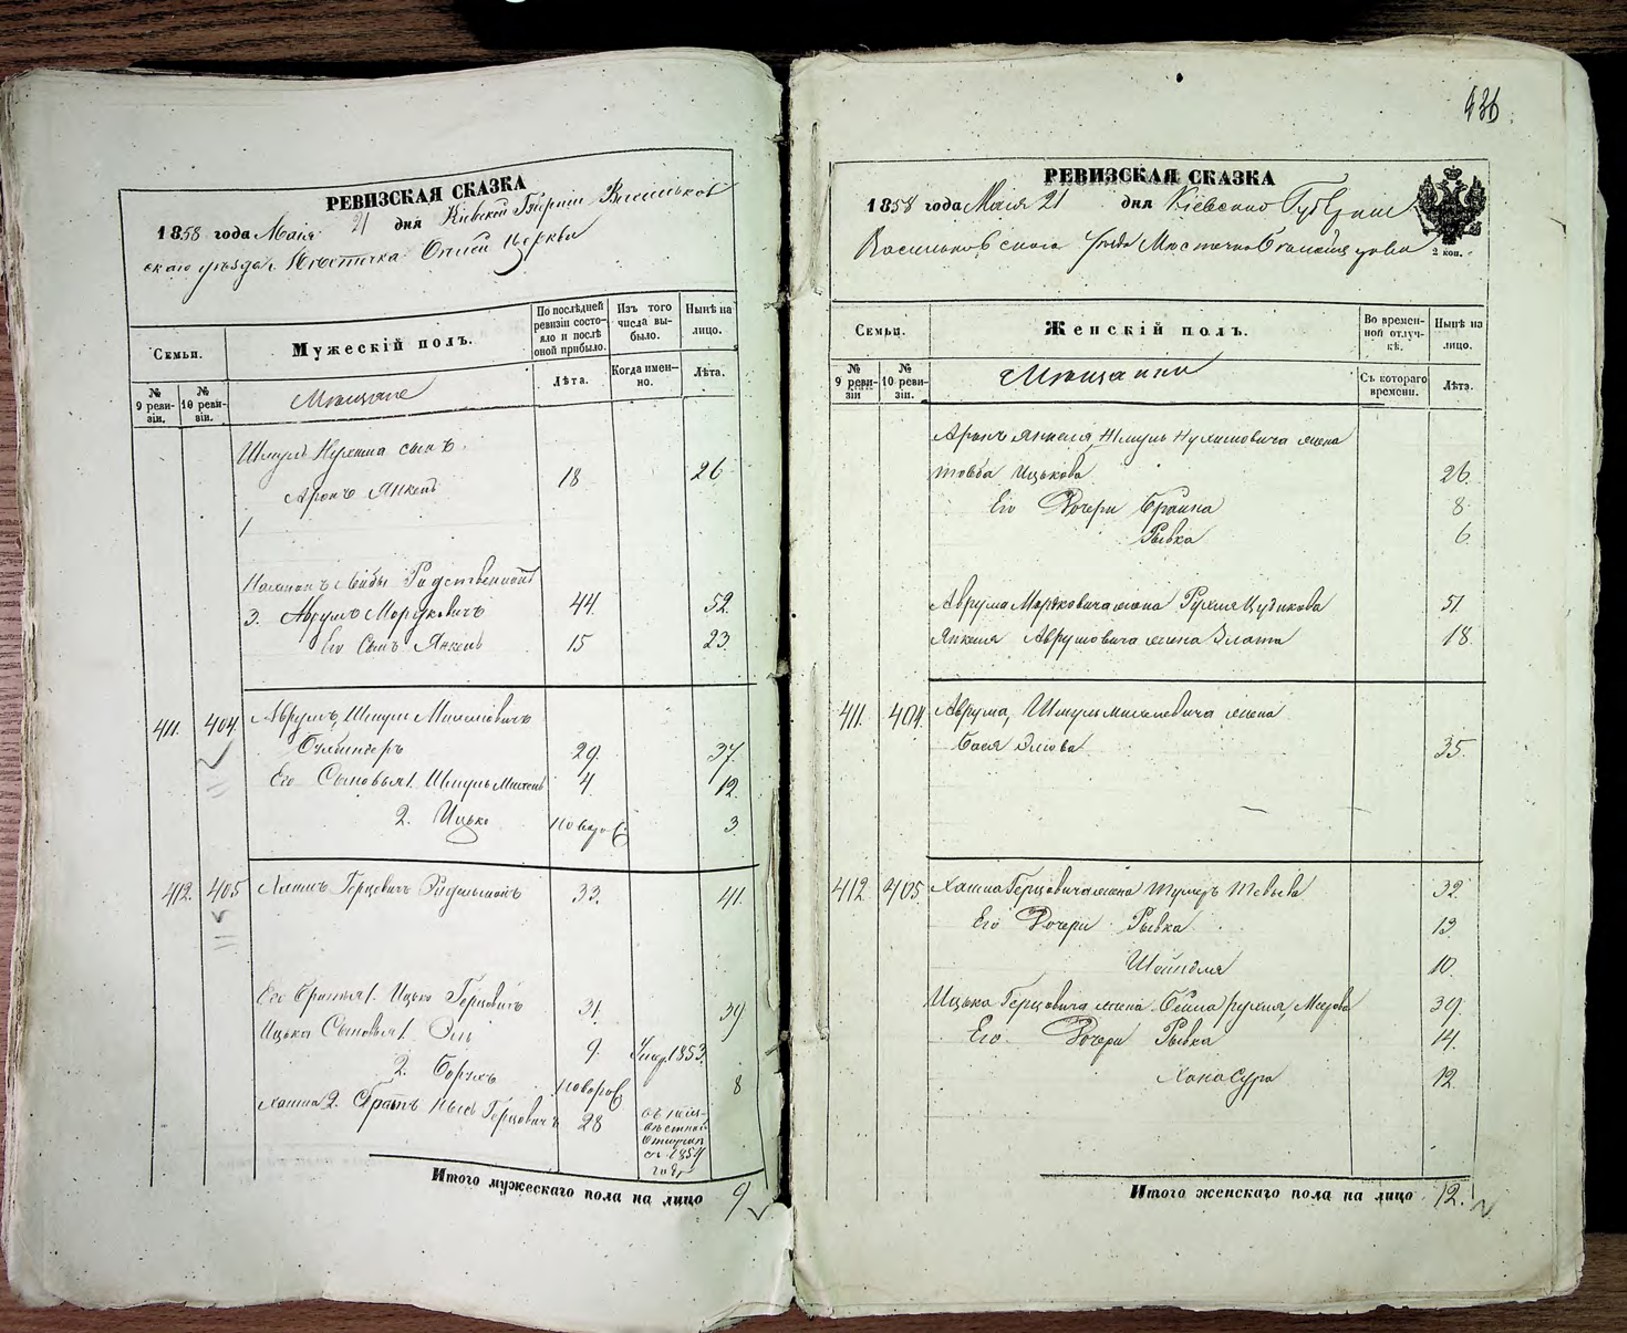 РЕВИЗСКАЯ СКАЗКА
1858 года Маія 21 дня Кіевской Губерніи Васильков
скаго уѣзда Мѣстечка Бѣлой Церкви
Семьи.
Мужескій полъ.
По послѣдней ревизіи состояло и послѣ оной прибыло.
Изъ того числа выбыло.
Нынѣ на лицо.
№ 9 ревизіи.
№ 10 ревизіи.
Мѣщане
Лѣта.
Когда именно.
Лѣта.
Шмуля Нухима сынъ
Аронъ Янкель 18 26
1
Родственникъ
3. Аврумъ Мордковичъ 44. 52.
Его Сынъ Янкель 15 23.
411. 404. Аврумъ, Шмуль
29. 37.
Его Сыновья 1. Шмуль 4. 12.
2. Ицько новорож. 3.
412. 405 Герцовичъ 33. 41.
Его Братья 1. Ицько Герцовичъ 31. 39
Ицька Сыновья 1. Эль 9. Умер. 1853.
2. Борухъ новорож 8
2. Братъ Герцовичъ 28
отлучкѣ
съ 1854
года
Итого мужескаго пола на лицо 9
436
РЕВИЗСКАЯ СКАЗКА
1858 года Маія 21 дня Кіевской Губерніи
Васильковскаго уѣзда Мѣстечка Бѣлойцеркви
2 коп.
Семьи.
Женскій полъ.
Во временной отлучкѣ.
Нынѣ на лицо.
№ 9 ревизіи
№ 10 ревизіи.
Мѣщанки
Съ котораго времени.
Лѣта.
Аронъ Янкеля, Шмуль Нухимовича жена
Товба Ицькова 26.
Его Дочери Браина 8
Рывка 6
Аврума Мордковича жена Рухля 51
Янкеля Аврумовича жена Злата 18.
411. 404. Аврума, Шмуль жена
Бася 35.
412. 405. Герцовича жена Тевьева 32.
Его Дочери Рывка 13
Шейндля 10.
Ицька Герцовича жена Бейла рухля, Меерова 39.
Его Дочери Рывка 14.
Хана Сура 12.
Итого женскаго пола на лицо 12.